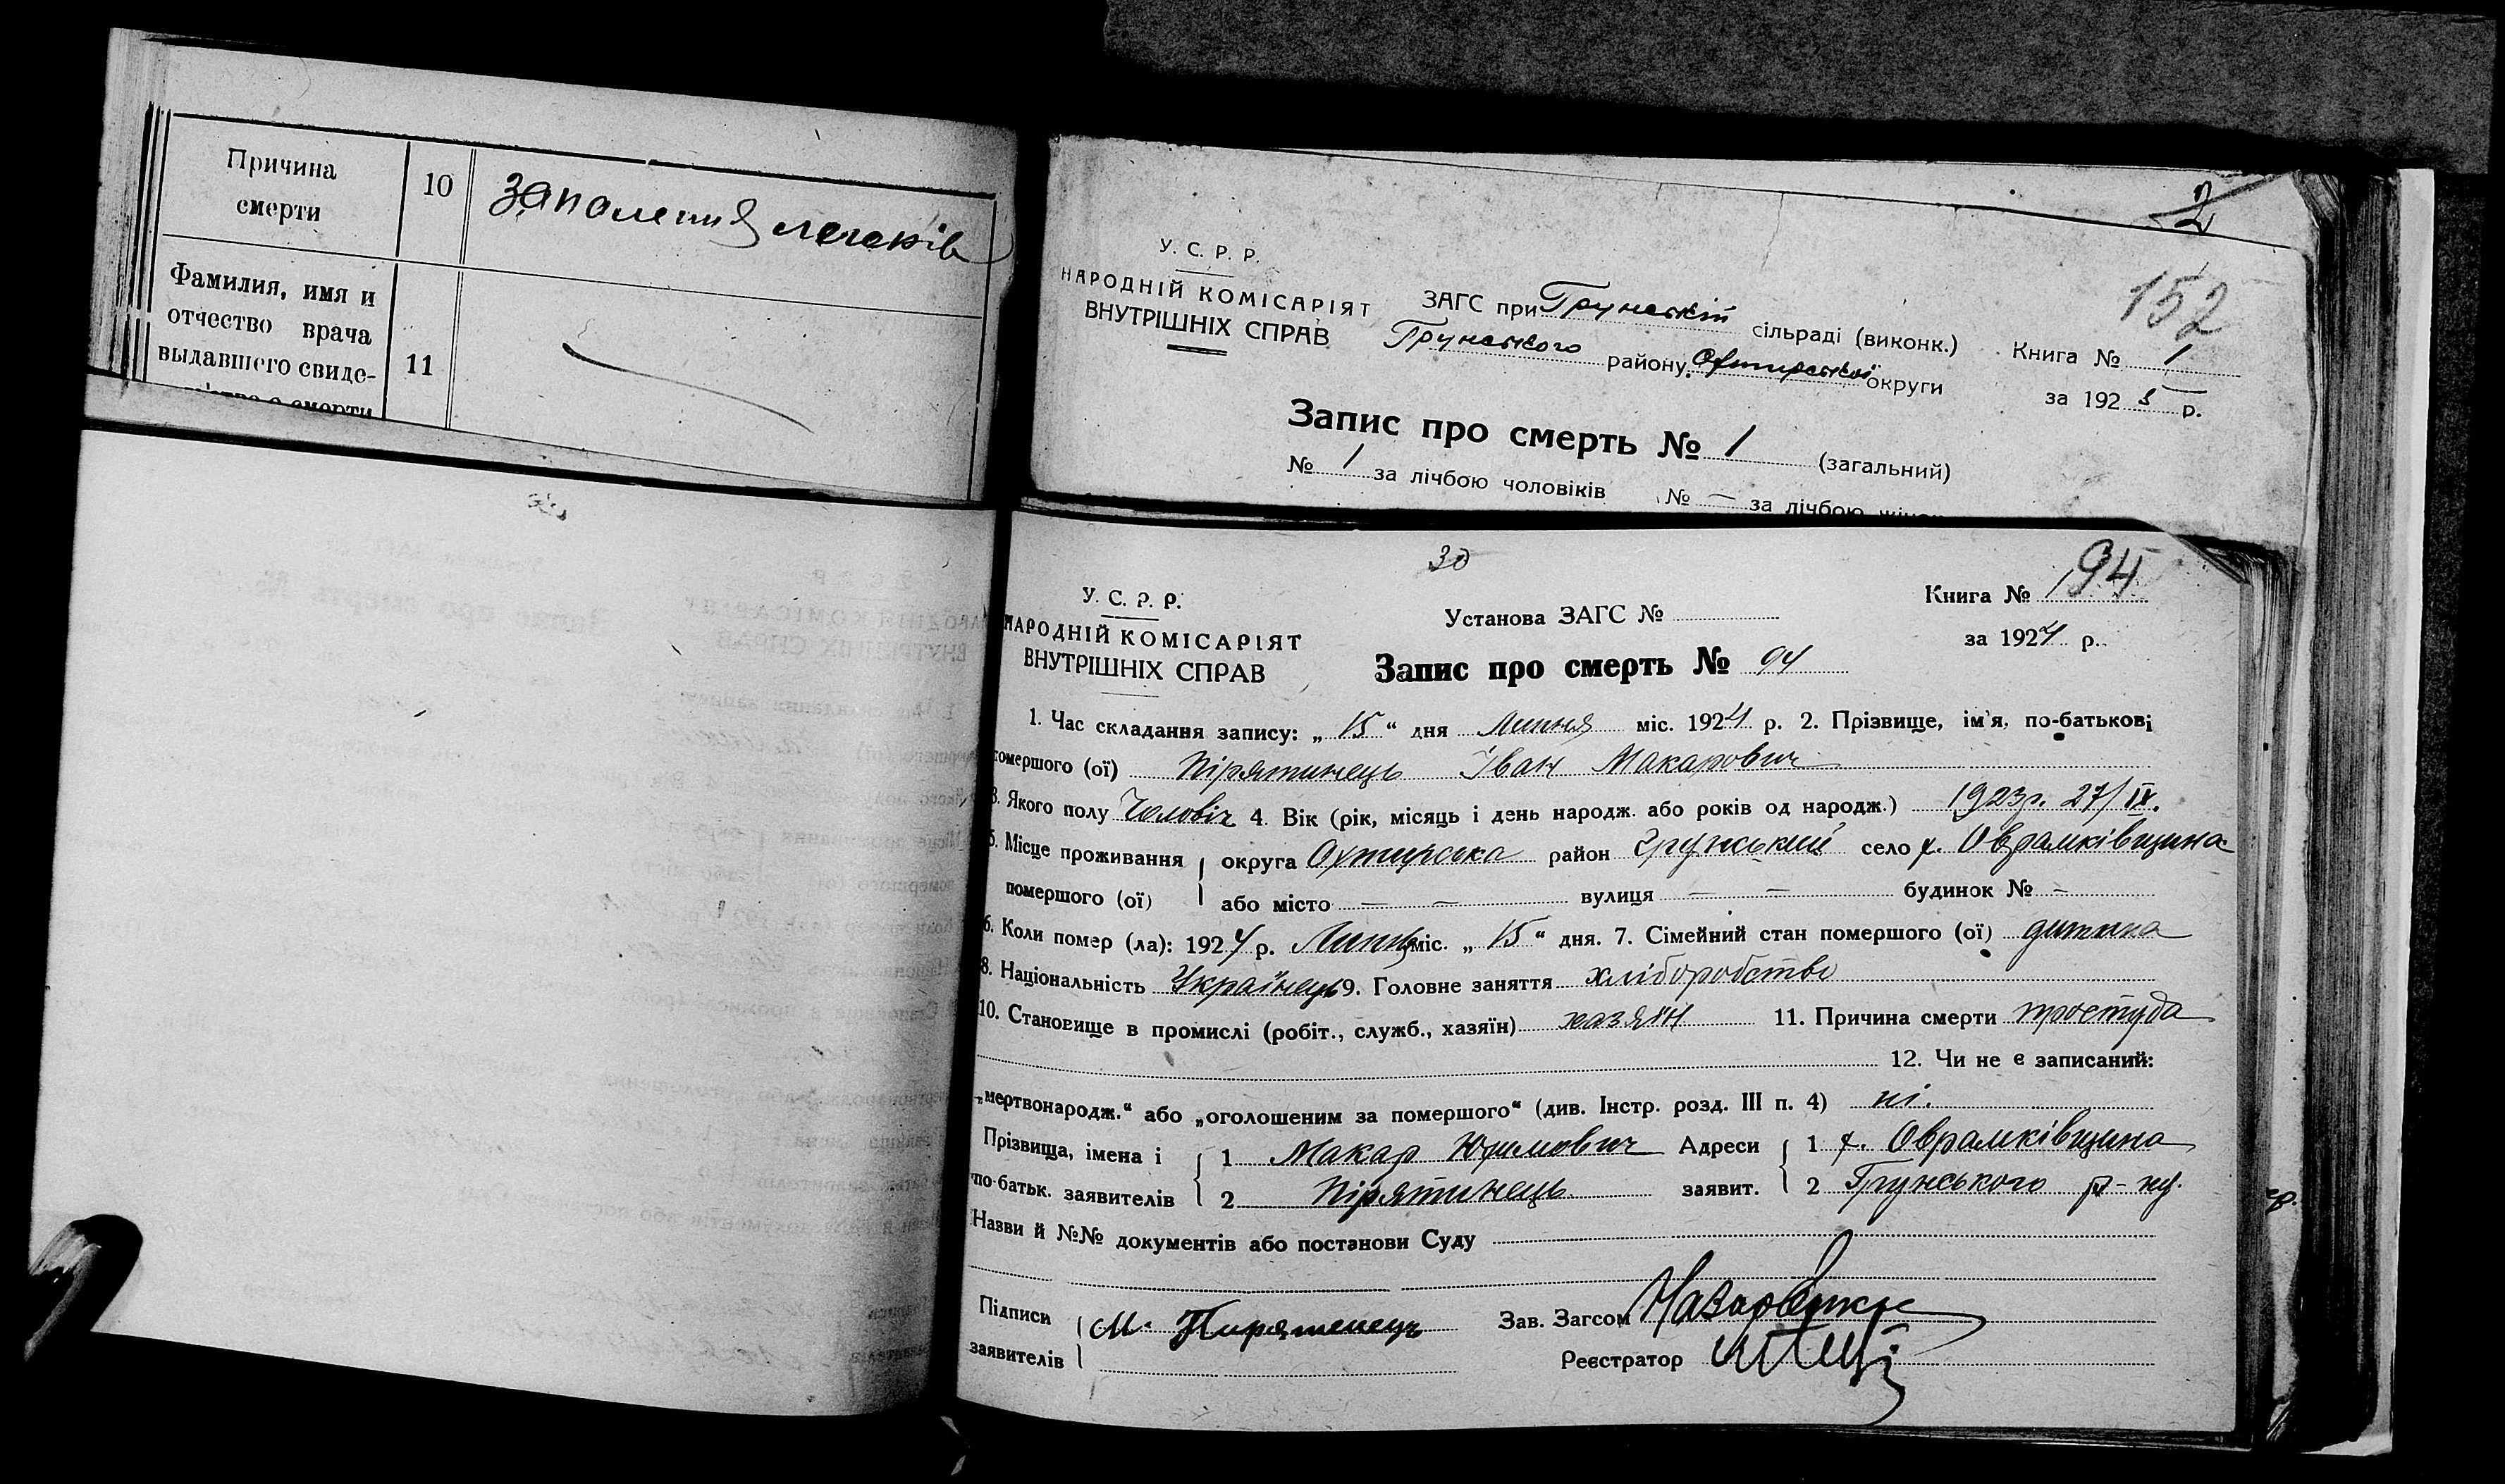 Причина
смерти
10
запаления легенів
Фамилия, имя и
отчество врача
выдавшего свиде-
11
2
152
У. С. Р. Р.
НАРОДНІЙ КОМІСАРІЯТ
ВНУТРІШНІХ СПРАВ
ЗАГС при Грунській сільраді (виконк.)
Грунського району, Охтирської округи
Книга № 1
за 1925 р.
Запис про смерть № 1 (загальний)
№ 1 за лічбою чоловіків № — за лічбою жінок
30
У. С. Р. Р.
НАРОДНІЙ КОМІСАРІЯТ
ВНУТРІШНІХ СПРАВ
Установа ЗАГС №
Книга № 194
за 1924 р.
Запис про смерть № 94
1. Час складання запису: „ 15 “ дня Липня міс. 1924 р. 2. Прізвище, ім'я, по-батькові
помершого (ої) Пірятинець Іван Макарович
3. Якого полу Чоловіч 4. Вік (рік, місяць і день народж. або років од народж.) 1923 р. 27/IX.
5. Місце проживання округа Охтирська район Грунський село х. Оврамківщина
помершого (ої) або місто — — вулиця — — будинок № —
6. Коли помер (ла): 1924 р. Липня міс. „ 15 “ дня. 7. Сімейний стан помершого (ої) дитина
8. Національність Українець 9. Головне заняття хліборобство
10. Становище в промислі (робіт., служб., хазяїн) хазяїн 11. Причина смерти простуда
12. Чи не є записаний:
„мертвонародж.“ або „оголошеним за помершого“ (див. Інстр. розд. III п. 4) ні.
Прізвища, імена і 1 Макар Юхимович Адреси 1 х. Оврамківщина
по-батьк. заявителів 2 Пірятинець заявит. 2 Грунського р-ну.
Назви й №№ документів або постанови Суду
Підписи М. Пирятенець Зав. Загсом
заявителів Реєстратор